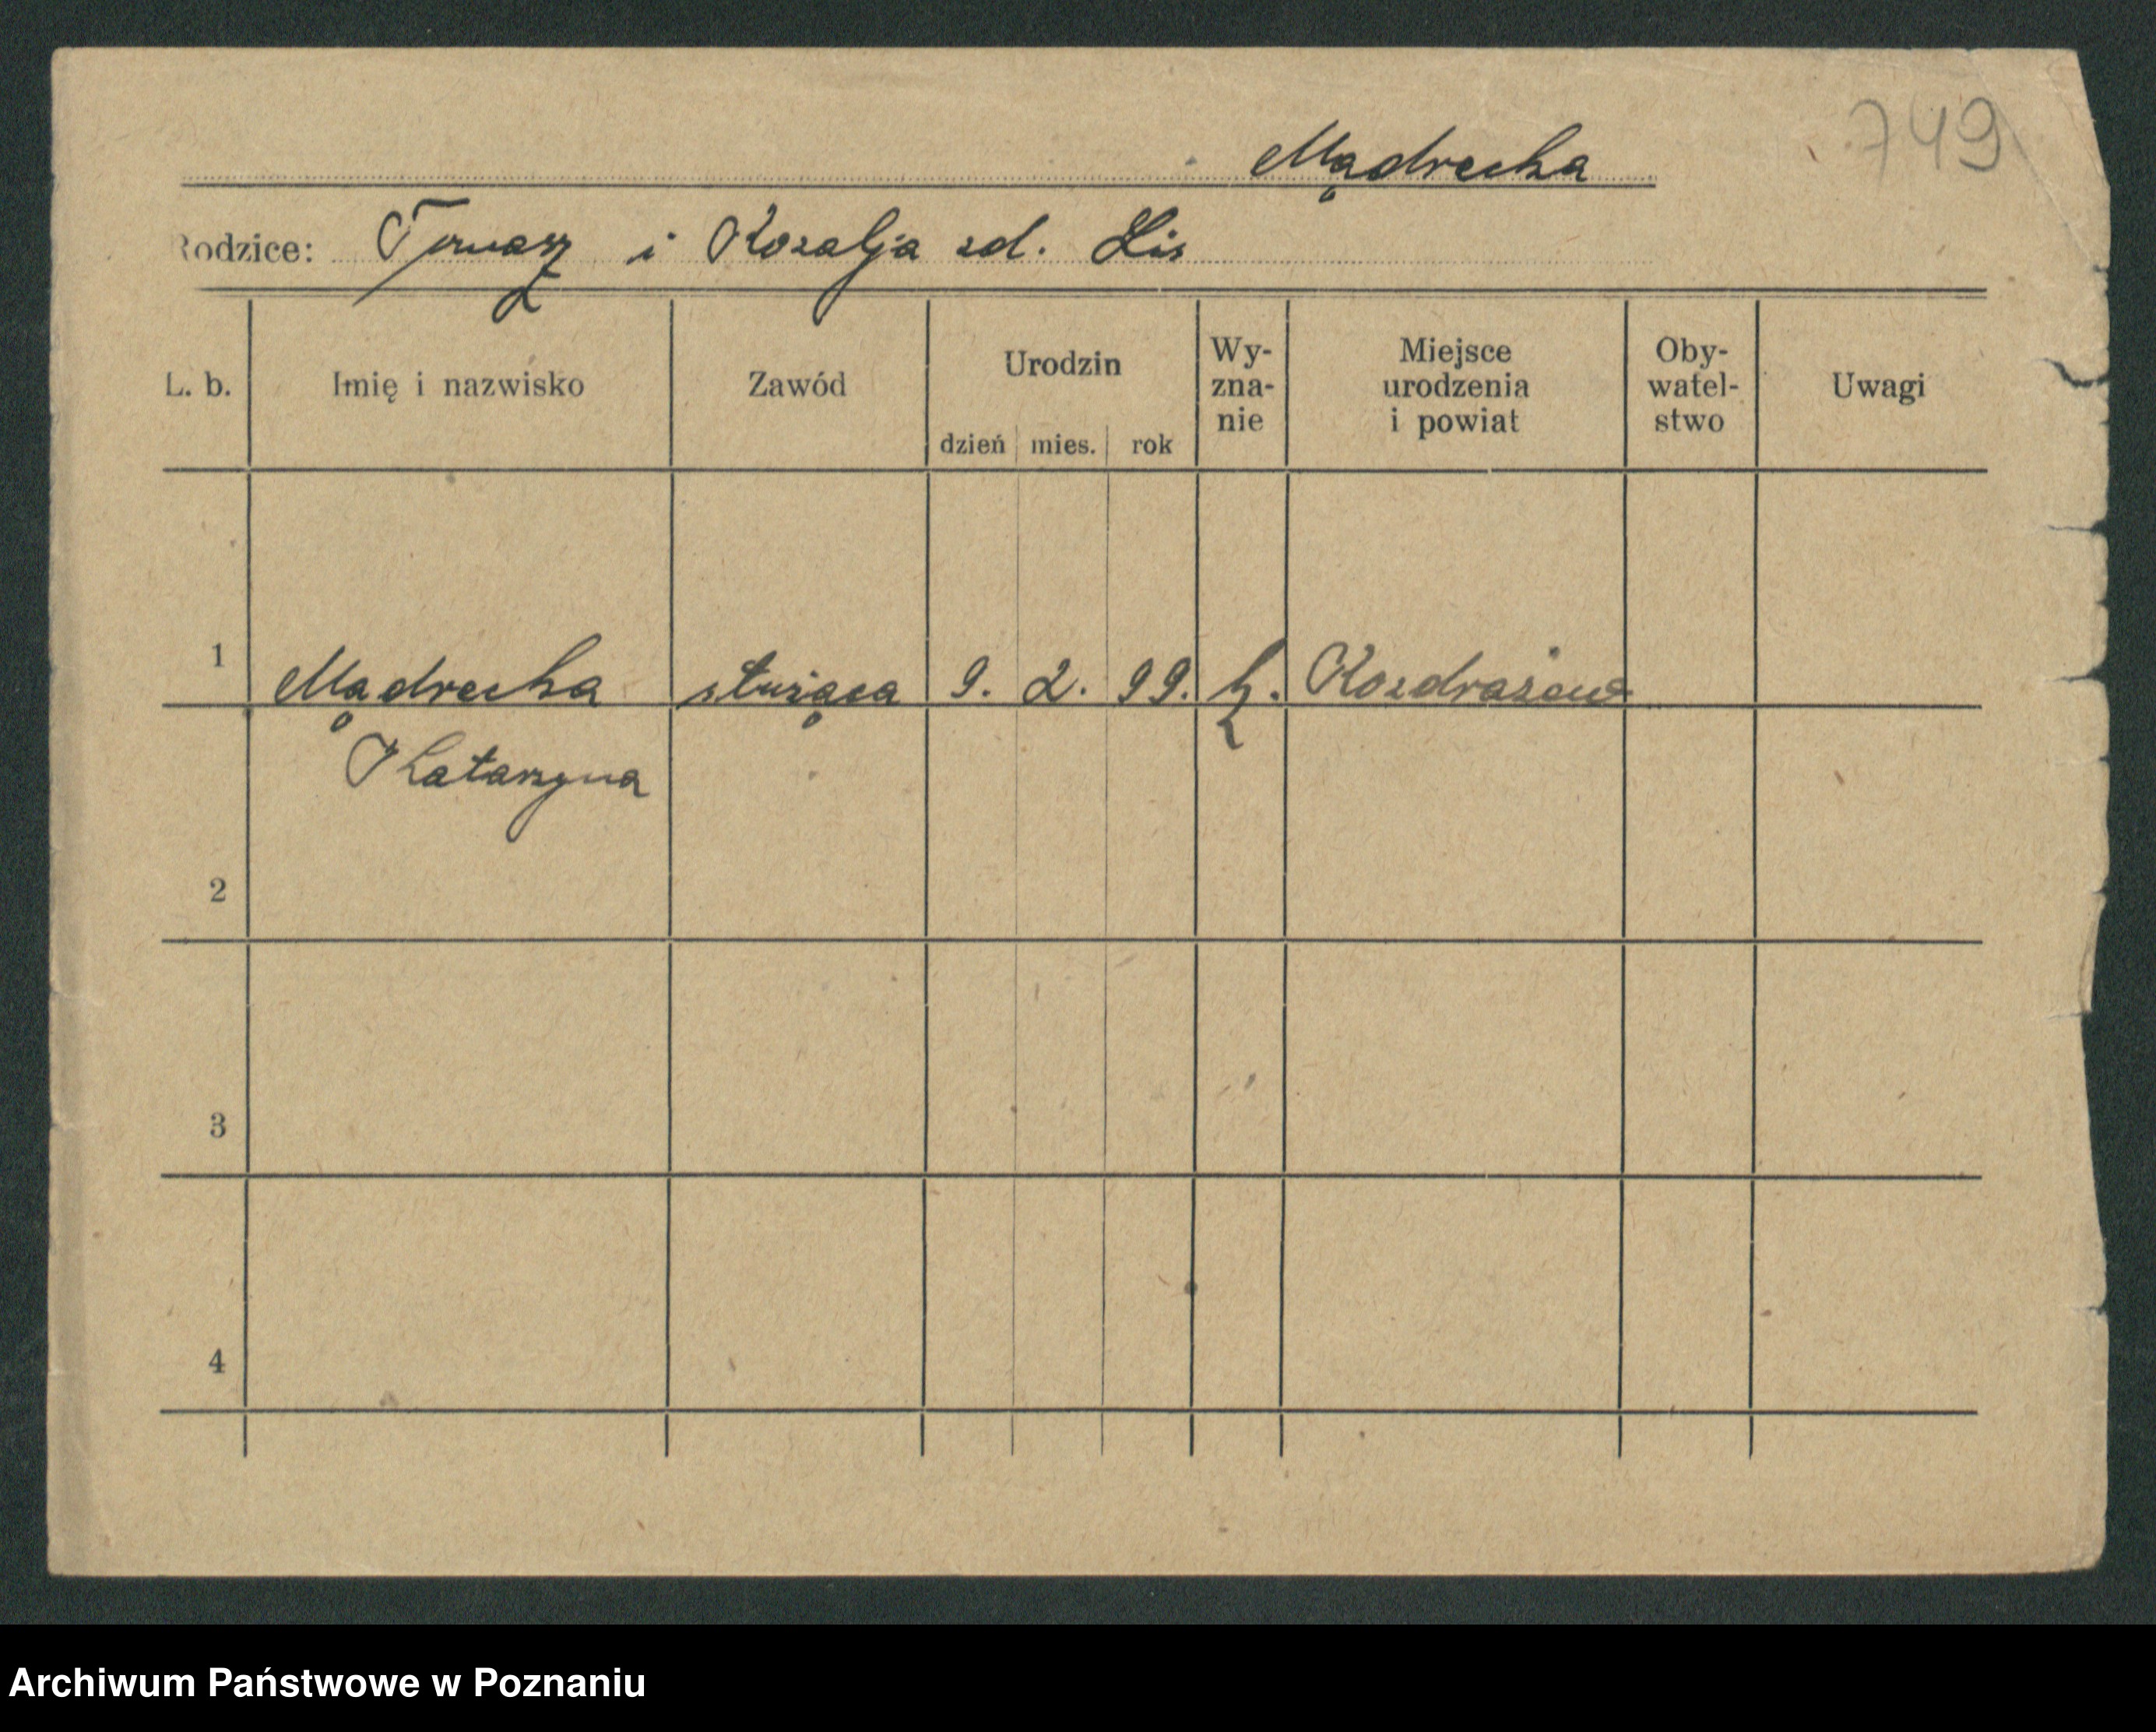 749
Mądrecka
Rodzice: Tomasz i Rozalja zd. Lis
L. b. Imię i nazwisko Zawód Urodzin dzień mies. rok Wy-zna-nie Miejsce urodzenia i powiat Oby-watel-stwo Uwagi
1 Mądrecka służąca 9. 2. 99. k. Rozdrażew
Katarzyna
2
3
4
Archiwum Państwowe w Poznaniu